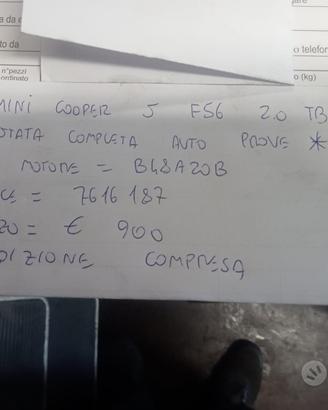 to da
n°pezzi
ordinato
o telefor
o (kg)
MINI COOPER S F56 2.0 TB
STATA COMPLETA AUTO PROVE *
MOTORE = B48A20B
CE = 7616187
ZO = € 900
DIZIONE COMPRESA